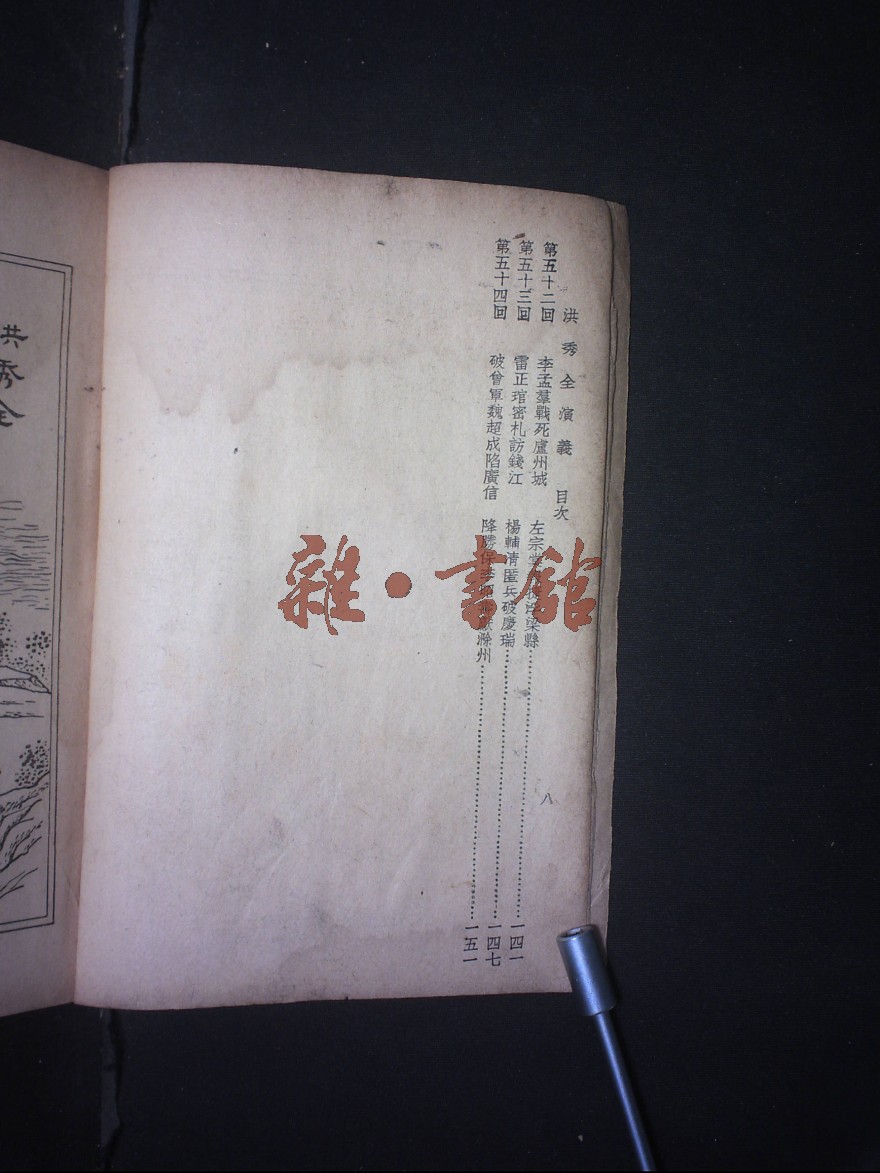 洪秀全演義 目次 八
第五十二回 李孟羣戰死廬州城 左宗堂 梁縣 一四一
第五十三回 雷正琯密札訪錢江 楊輔清匿兵破慶瑞 一四七
第五十四回 破曾軍魏超成陷廣信 降勝保李昭壽獻滁州 一五一
洪秀全
雜·書館